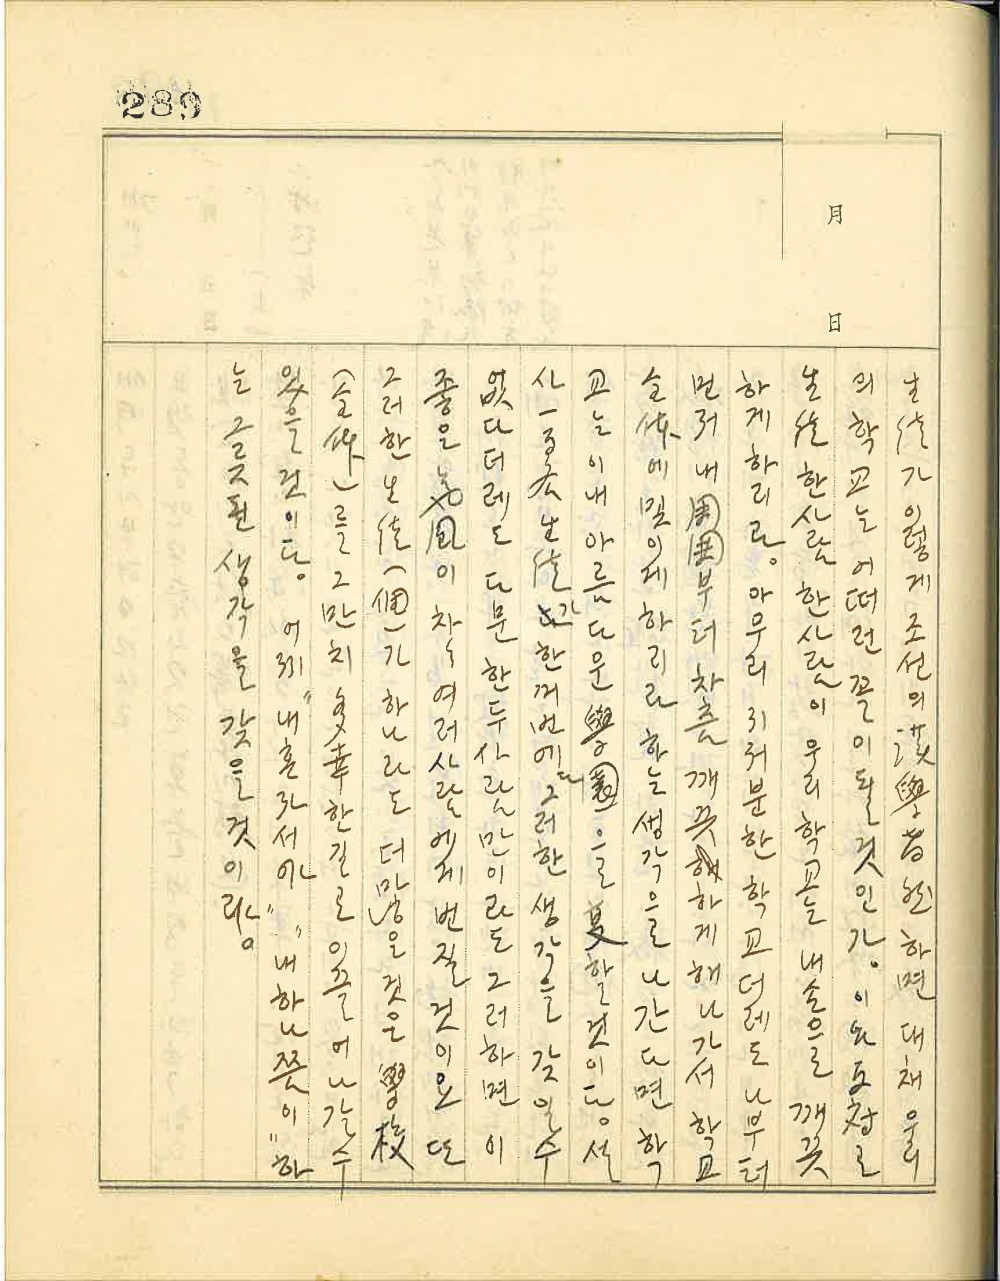 289
月
日
生徒가 이렇게 조선의 漢學者然하면 대채 우리
의 학교는 어떠런 꼴이 될것인가。이와 反対로
生徒 한사람 한사람이 우리 학교를 내손으로 깨끗
하게 하리라。아무리 지저분한 학교더레도 나부터
먼저 내 周囲부터 차츰 깨끗하게 해나가서 학교
全体에 및이게 하리라 하는 생각으로 나간다면 학
교는 이내 아름다운 學園으로 変할것이다。설
사 一百名 生徒가 한꺼번에 다 그러한 생각을 갖일수
없다더레도 다문 한두사람만이라도 그러하면 이
좋은 氣風이 차차 여러사람에게 번질 것이오 또
그러한 生徒(個)가 하나라도 더많을것은 學校
(全体)를 그만치 多幸한길로 이끌어 나갈수
있을것이다。어찌 "내혼자서야" "내하나쯤이" 하
는 글읏된 생각을 갖을것이랴。